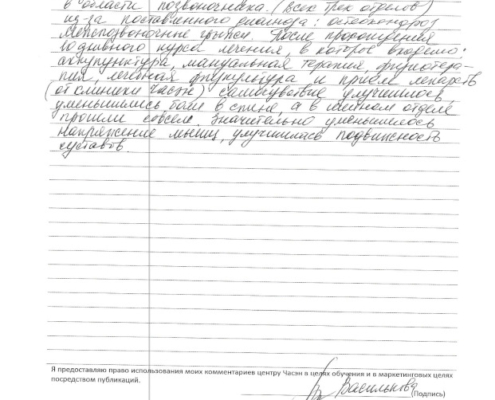 в области позвоночника. (всех трех отделов)
из-за поставленного диагноза: остеохондроз
Межпозвоночные грыжи. После прохождения
годивного курса лечения, в которое входило:
аккупунктура, мануальная терапия, физиотера-
пия, лечебная физкультура и прием лекарств
(от клиники Часэн) самочувствие улучшилось
уменьшились боли в спине, а в шейном отделе
прошли совсем. Значительно уменьшилось
напряжение мышц, улучшилась подвижность
суставов.
Я предоставляю право использования моих комментариев центру Часэн в целях обучения и в маркетинговых целях
посредством публикаций.
Василькова
(Подпись)